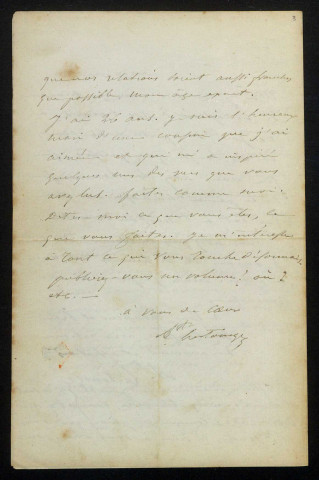 que nos relations soient aussi franches
que possible, mon âge avant.
J'ai 26 ans. Je suis l'heureux
mari d'une cousine que j'ai
aimée et qui m'a inspiré
quelques uns des vers que vous
avez lus. Faites comme moi.
Dites-moi ce que vous êtes, ce
que vous faites. Je m'intéresse
à tout ce qui vous touche désormais
publiez-vous un volume ? où ?
etc. —
à vous de cœur